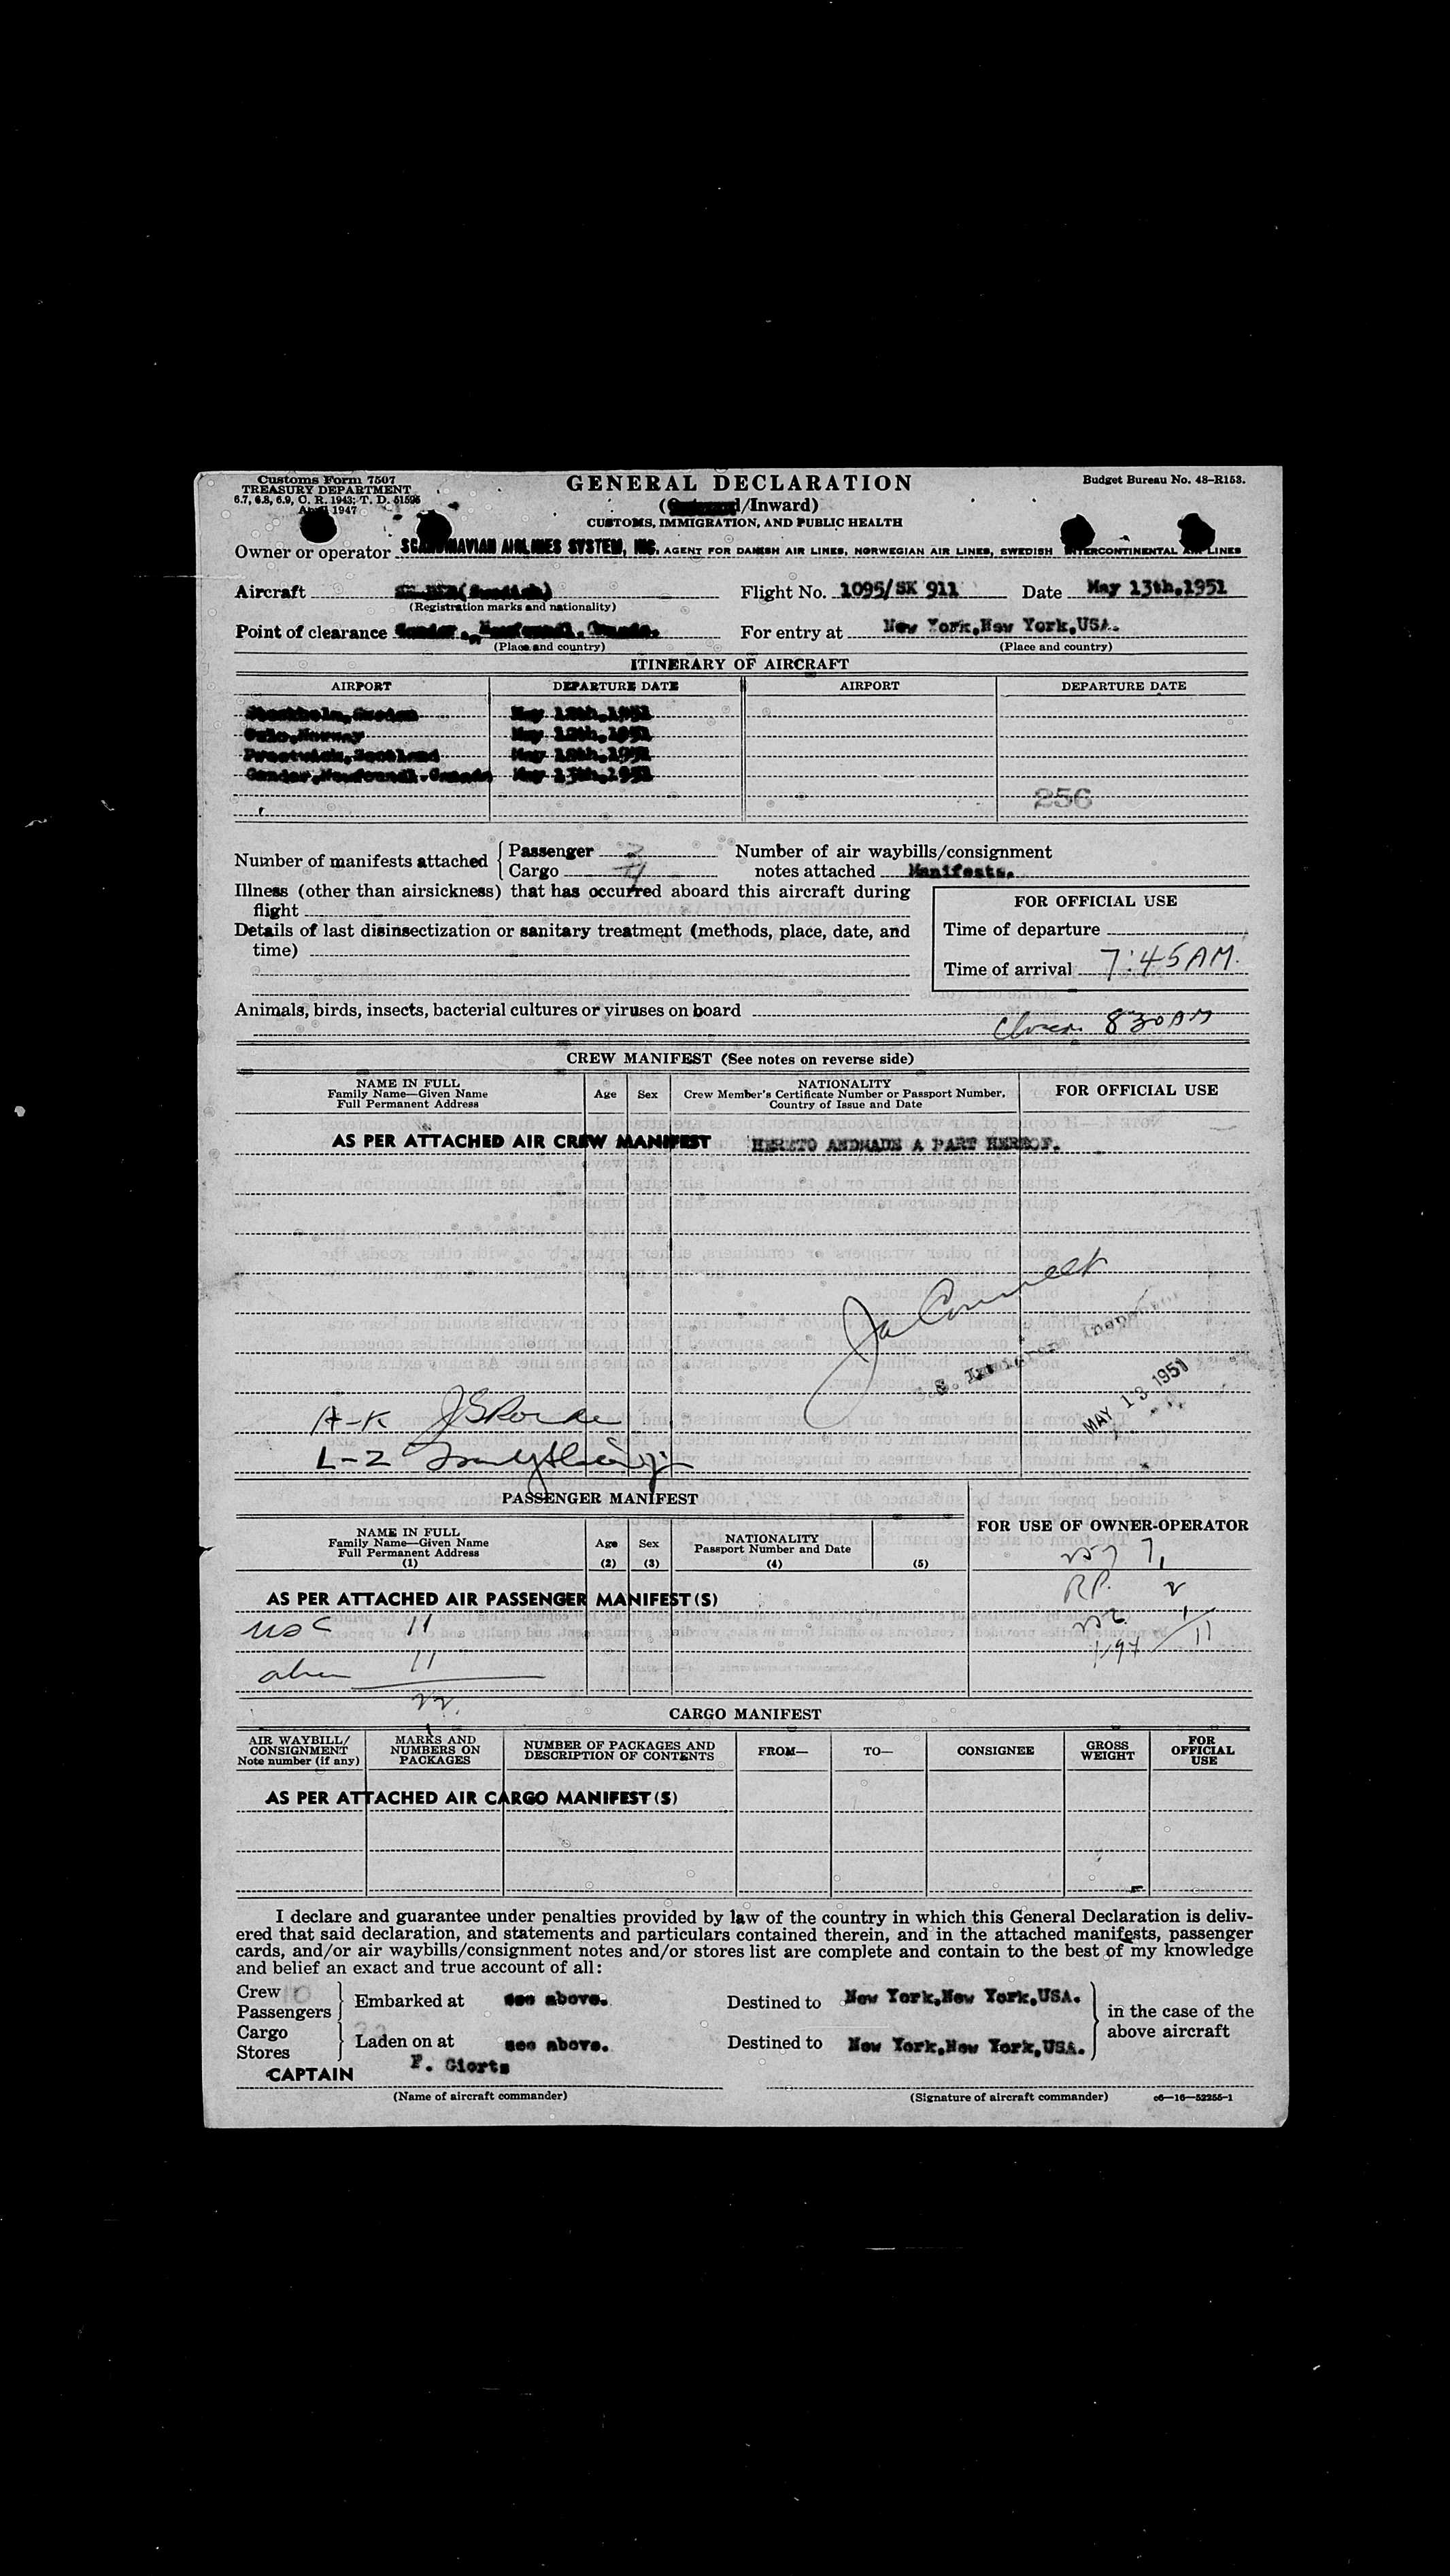 Customs Form 7507
TREASURY DEPARTMENT
6.7, 6.8, 6.9, C. R. 1943; T. D. 51595
April 1947
GENERAL DECLARATION
(Outward/Inward)
CUSTOMS, IMMIGRATION, AND PUBLIC HEALTH
Budget Bureau No. 48-R153.
Owner or operator SCANDINAVIAN AIRLINES SYSTEM, INC. AGENT FOR DANISH AIR LINES, NORWEGIAN AIR LINES, SWEDISH INTERCONTINENTAL AIR LINES
Aircraft (Swedish) Flight No. 1095/SK 911 Date May 13th,1951
(Registration marks and nationality)
Point of clearance Gander, Newfoundl. Canada. For entry at New York,New York,USA.
(Place and country) (Place and country)
ITINERARY OF AIRCRAFT
AIRPORT DEPARTURE DATE AIRPORT DEPARTURE DATE
Stockholm,Sweden May 12th,1951
Oslo,Norway May 12th,1951
Prestwick,Scotland May 12th,1951
Gander,Newfoundl.Canada May 13th,1951
256
Number of manifests attached { Passenger 2 Number of air waybills/consignment
Cargo 4 notes attached Manifests.
Illness (other than airsickness) that has occurred aboard this aircraft during
flight
Details of last disinsectization or sanitary treatment (methods, place, date, and
time)
FOR OFFICIAL USE
Time of departure
Time of arrival 7:45 AM.
Animals, birds, insects, bacterial cultures or viruses on board
8 30 AM
CREW MANIFEST (See notes on reverse side)
NAME IN FULL
Family Name—Given Name
Full Permanent Address
Age Sex
NATIONALITY
Crew Member's Certificate Number or Passport Number,
Country of Issue and Date
FOR OFFICIAL USE
AS PER ATTACHED AIR CREW MANIFEST HERETO ANDMADE A PART HEREOF.
U.S. Immigrant Inspector
MAY 13 1951
A-K
L-Z
PASSENGER MANIFEST
NAME IN FULL
Family Name—Given Name
Full Permanent Address
(1)
Age
(2)
Sex
(3)
NATIONALITY
Passport Number and Date
(4)
(5)
FOR USE OF OWNER-OPERATOR
R.P. 2
AS PER ATTACHED AIR PASSENGER MANIFEST(S)
USC 11
11
alien 11
22
CARGO MANIFEST
AIR WAYBILL/
CONSIGNMENT
Note number (if any)
MARKS AND
NUMBERS ON
PACKAGES
NUMBER OF PACKAGES AND
DESCRIPTION OF CONTENTS
FROM—
TO—
CONSIGNEE
GROSS
WEIGHT
FOR
OFFICIAL
USE
AS PER ATTACHED AIR CARGO MANIFEST(S)
I declare and guarantee under penalties provided by law of the country in which this General Declaration is deliv-
ered that said declaration, and statements and particulars contained therein, and in the attached manifests, passenger
cards, and/or air waybills/consignment notes and/or stores list are complete and contain to the best of my knowledge
and belief an exact and true account of all:
Crew 10
Passengers } Embarked at see above. Destined to New York,New York,USA.
Cargo
Stores } Laden on at see above. Destined to New York,New York,USA.
in the case of the
above aircraft
CAPTAIN F. Giorts
(Name of aircraft commander) (Signature of aircraft commander) c6—16—52255-1